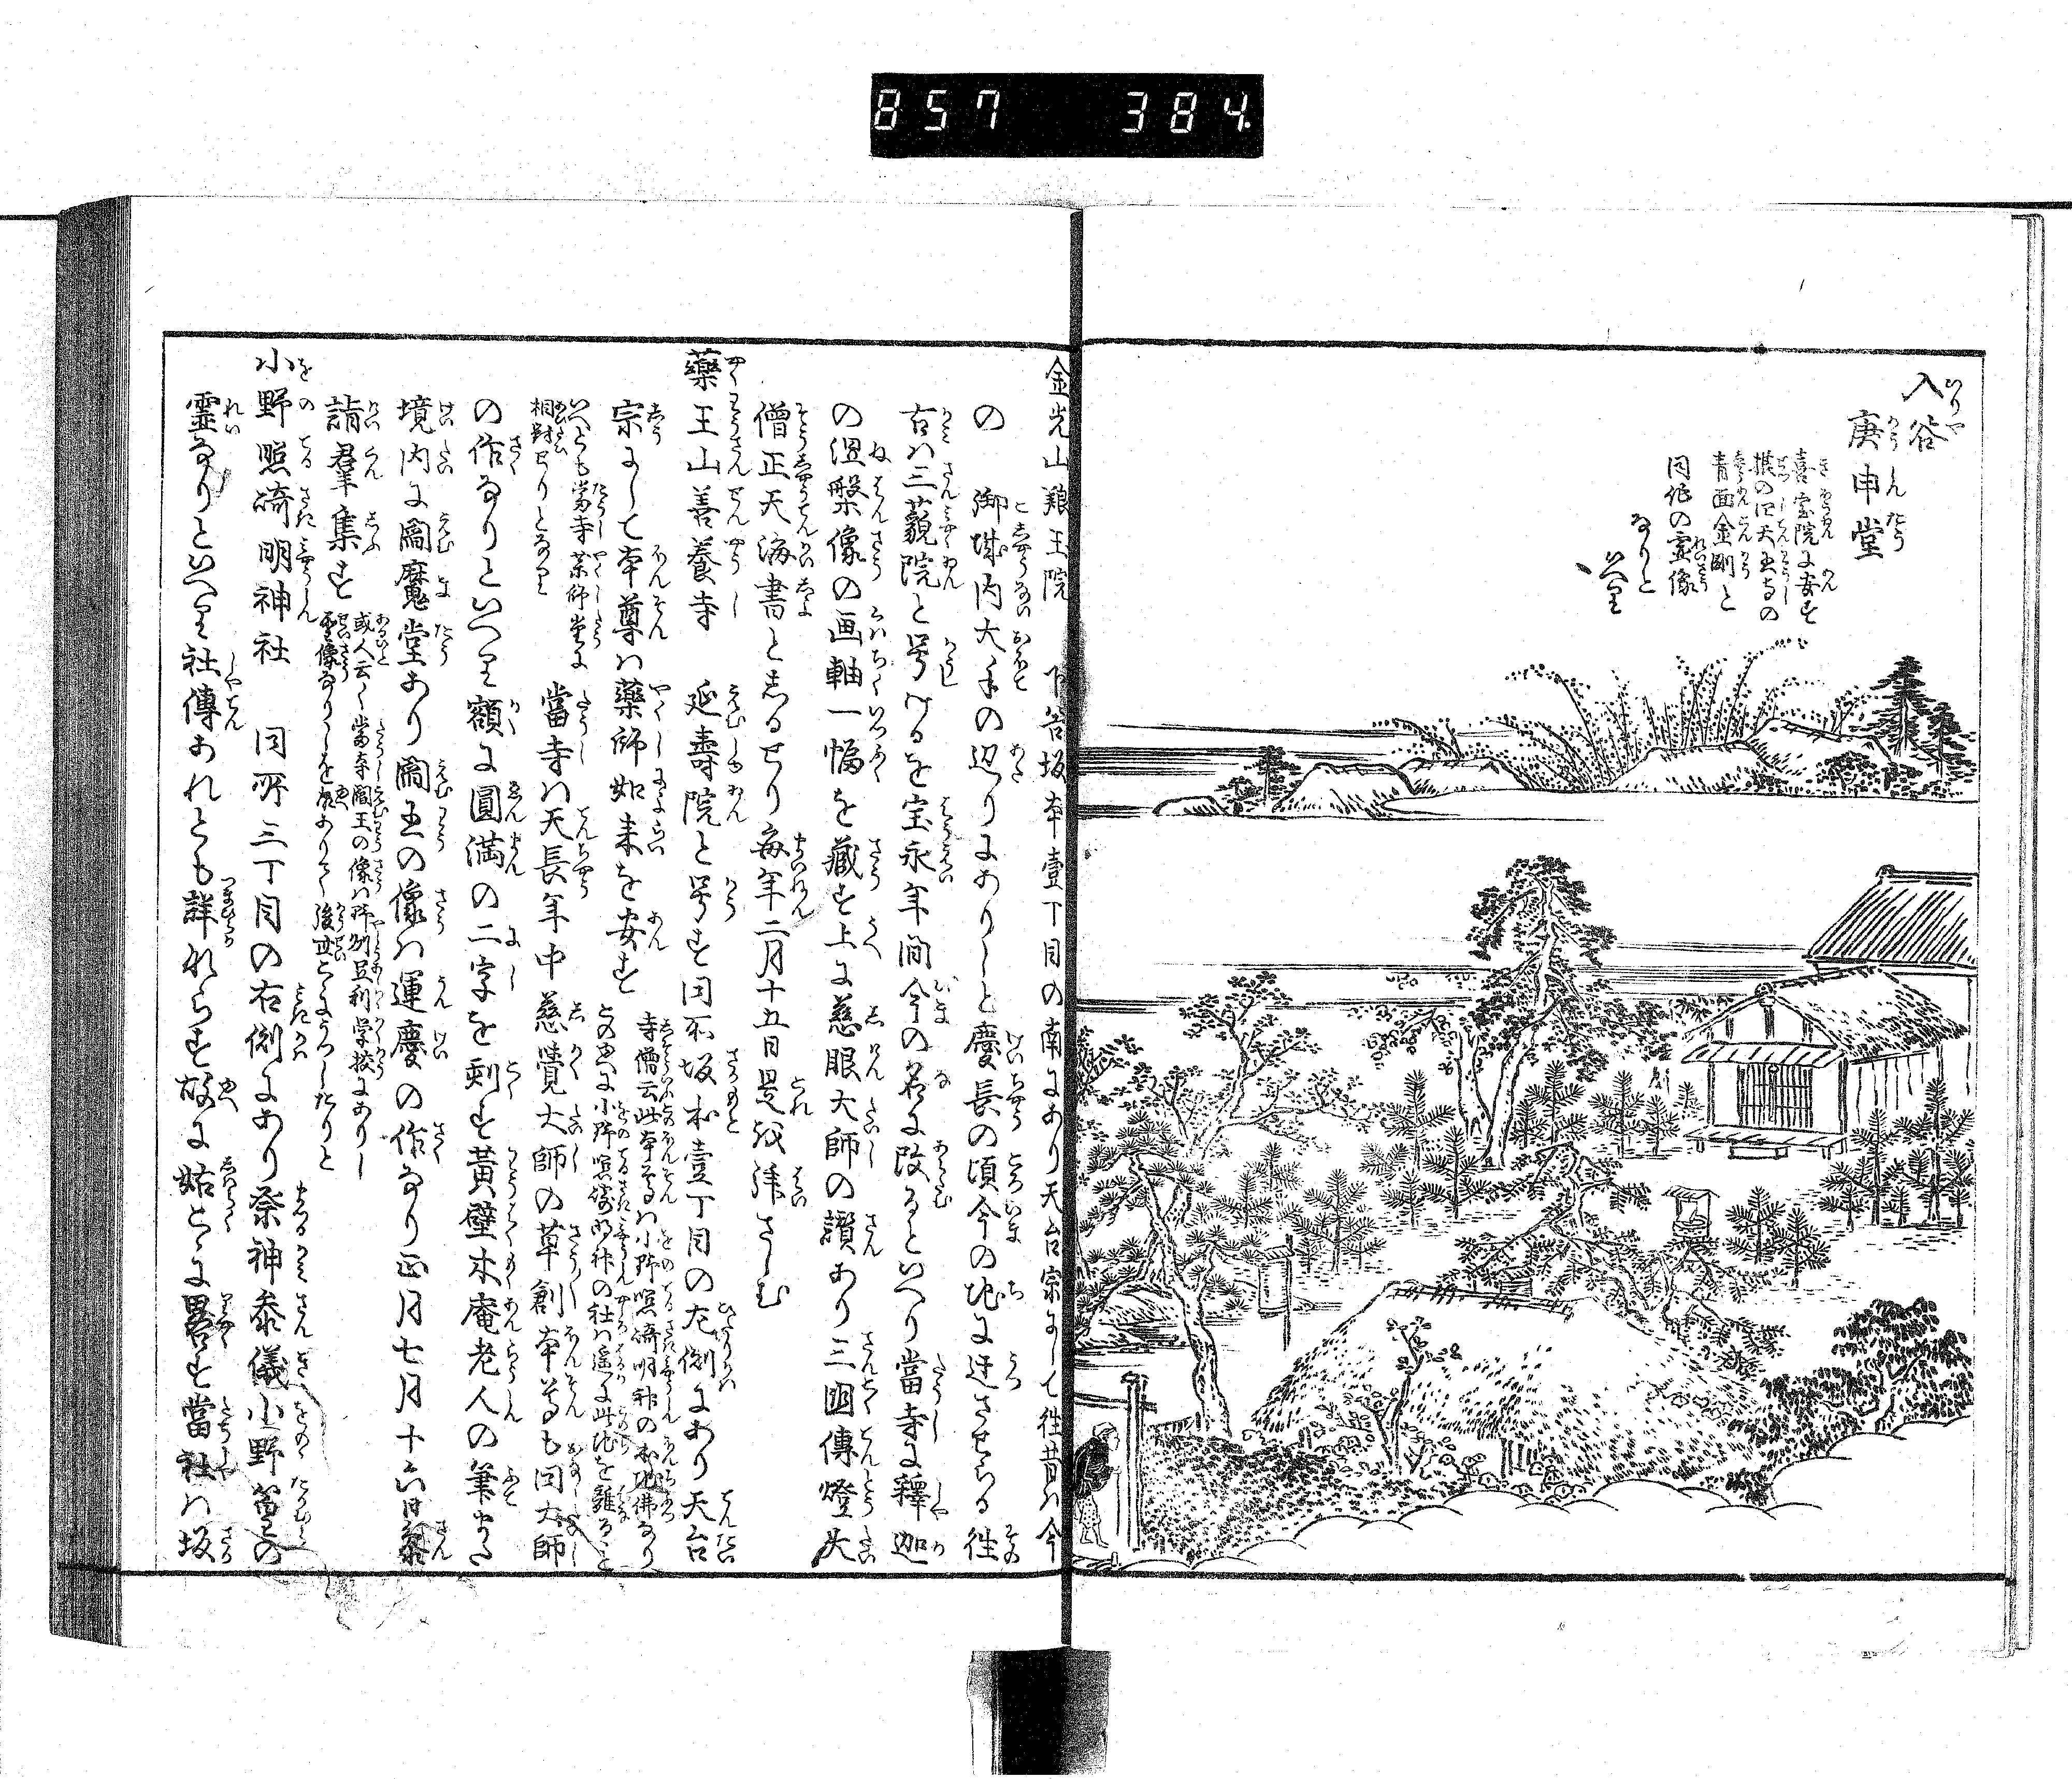 857 384
入谷
庚申堂
喜宝院に安す
摂の四天王寺の
青面金剛と
同作の霊像
なりと
いへり
金光山 王院 下谷坂本壹丁目の南にあり天台宗にして往昔ハ今
の 御城内大手の辺りにありしと慶長の頃今の地に迁させらる往
古ハ三藐院と号けるを宝永年間今の名に改るといへり當寺に釋迦
の涅槃像の画軸一幅を藏す上に慈眼大師の讃あり三国傳燈大
僧正天海書と志るせり毎年二月十五日是を拝さしむ
藥王山善養寺 延壽院と号す同所坂本壹丁目の左側にあり天台
宗にして本尊ハ藥師如来を安す
寺僧云此本尊ハ小野照崎明神の本地佛なり
との故に小野照崎明神の社ハ遥に此地を離るゝと
いへとも當寺薬師堂に
相對せりとなり
當寺ハ天長年中慈覺大師の草創本尊も同大師
の作なりといへり額に圓満の二字を刻す黄檗木庵老人の筆なり
境内に閻魔堂あり閻王の像ハ運慶の作なり正月七月十六日參
詣羣集す
或人云く當寺閻王の像ハ野州足利学校にありし
聖像なりしを故ありて後世こゝにうつしたりと
小野照崎明神社 同所三丁目の右側にあり祭神參儀小野篁の
霊なりといへり社傳あれとも詳ならす故に姑くこゝに畧す當社ハ坂